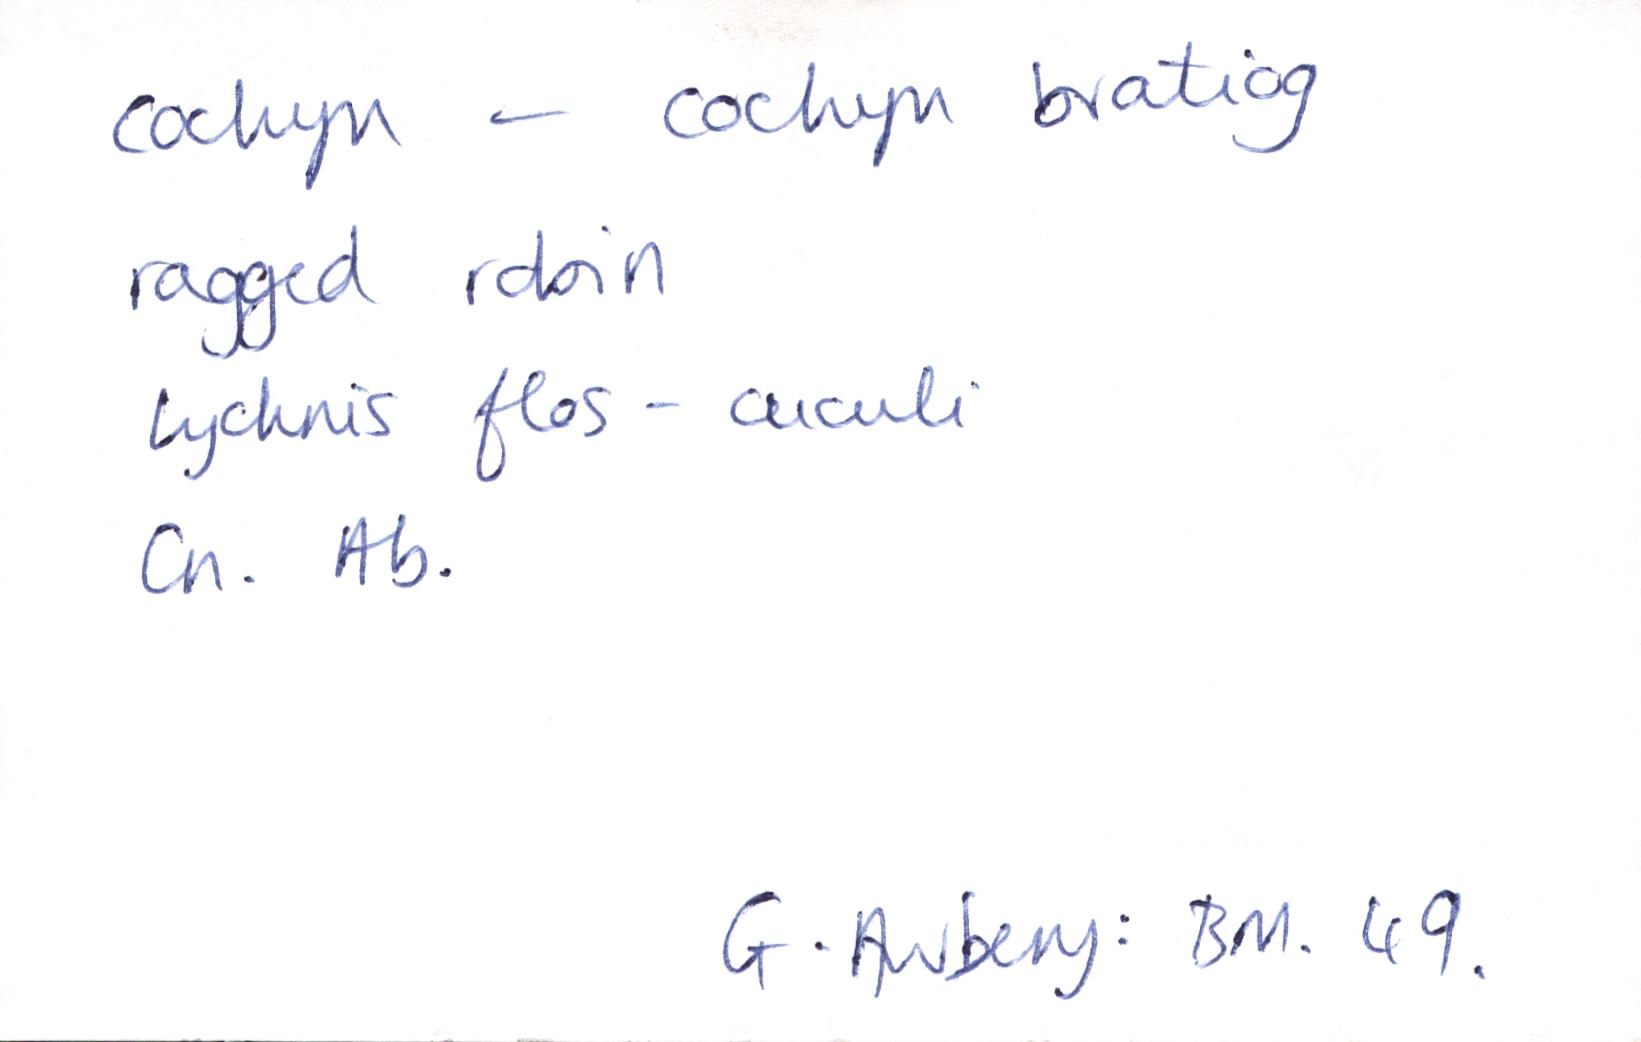 cochyn - cochyn bratiog
ragged robin
Lychnis flos - cuculi
Cn. Ab.
G. Awbery: BM. 49.